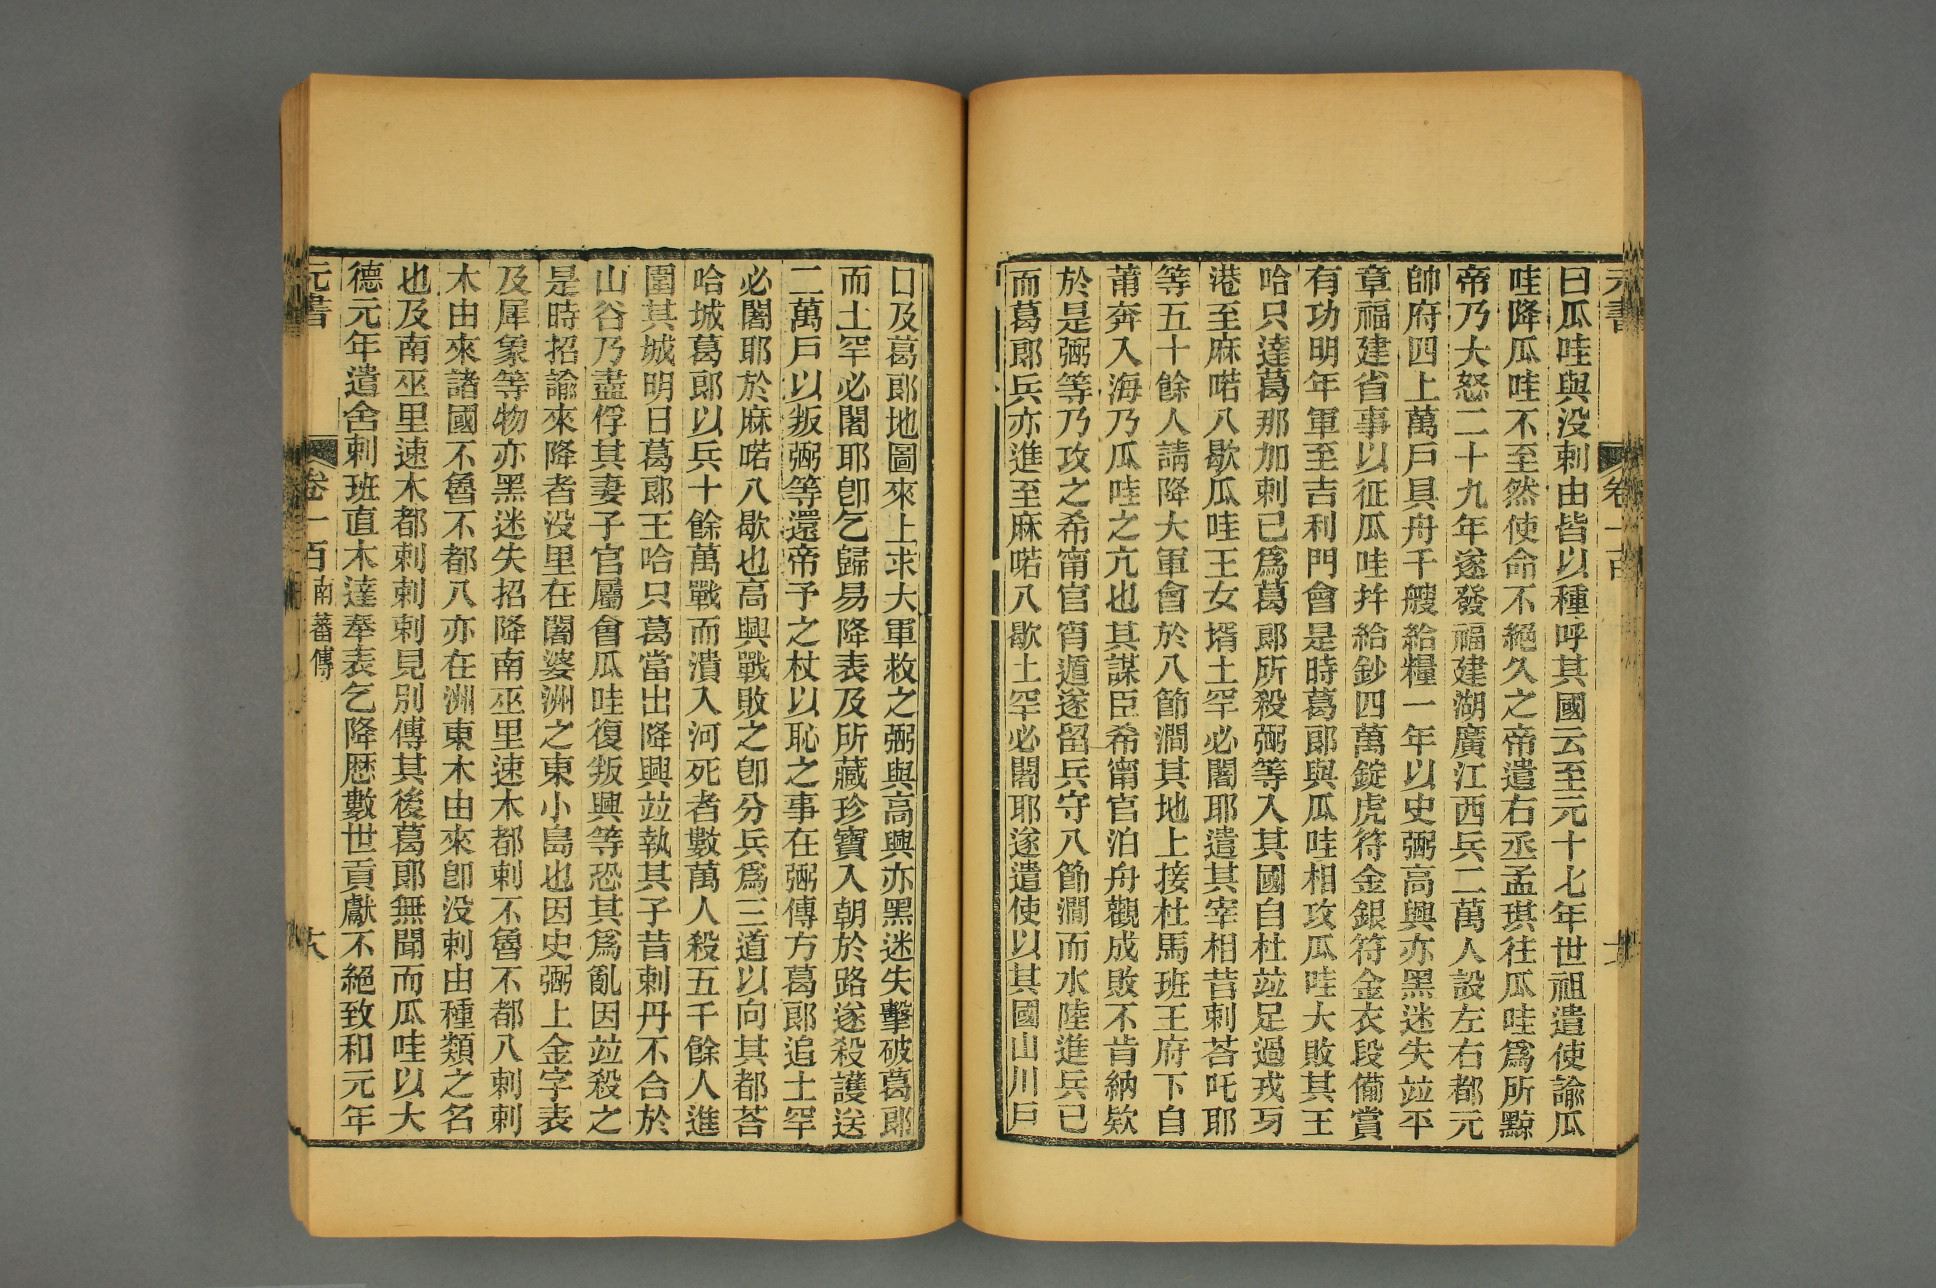 元書 卷一百
曰瓜哇與没剌由皆以種呼其國云至元十七年世祖遣使諭瓜
哇降瓜哇不至然使命不絕久之帝遣右丞孟琪往瓜哇爲所黥
帝乃大怒二十九年遂發福建湖廣江西兵二萬人設左右都元
帥府四上萬戶具舟千艘給糧一年以史弼高興亦黑迷失竝平
章福建省事以征瓜哇幷給鈔四萬錠虎符金銀符金衣段備賞
有功明年軍至吉利門會是時葛郞與瓜哇相攻瓜哇大敗其王
哈只達葛那加剌已爲葛郞所殺弼等入其國自杜竝足過戎牙
港至麻喏八歇瓜哇王女壻土罕必闍耶遣其宰相昔剌荅吒耶
等五十餘人請降大軍會於八節澗其地上接杜馬班王府下自
莆奔入海乃瓜哇之亢也其謀臣希甯官泊舟觀成敗不肯納欵
於是弼等乃攻之希甯官宵遁遂留兵守八節澗而水陸進兵已
而葛郞兵亦進至麻喏八歇土罕必闍耶遂遣使以其國山川戶
口及葛郞地圖來上求大軍救之弼與高興亦黑迷失擊破葛郞
而土罕必闍耶卽乞歸易降表及所藏珍寶入朝於路遂殺護送
二萬戶以叛弼等還帝予之杖以恥之事在弼傳方葛郞追土罕
必闍耶於麻喏八歇也高興戰敗之卽分兵爲三道以向其都荅
哈城葛郞以兵十餘萬戰而潰入河死者數萬人殺五千餘人進
圍其城明日葛郞王哈只葛當出降興竝執其子昔剌丹不合於
山谷乃盡俘其妻子官屬會瓜哇復叛興等恐其爲亂因竝殺之
是時招諭來降者没里在闍婆洲之東小島也因史弼上金字表
及犀象等物亦黑迷失招降南巫里速木都剌不魯不都八剌剌
木由來諸國不魯不都八亦在洲東木由來卽没剌由種類之名
也及南巫里速木都剌剌剌見別傳其後葛郞無聞而瓜哇以大
德元年遣舍剌班直木達奉表乞降歷數世貢獻不絕致和元年
元書 卷一百 南蕃傳 六